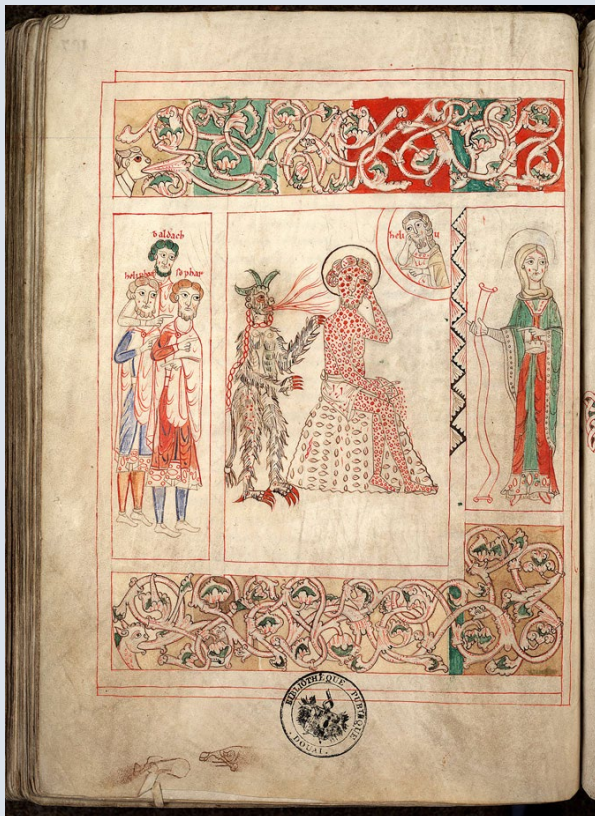 baldach
heliphaz
sophar
heli u
BIBLIOTHÈQUE PUBLIQUE
DOUAI.